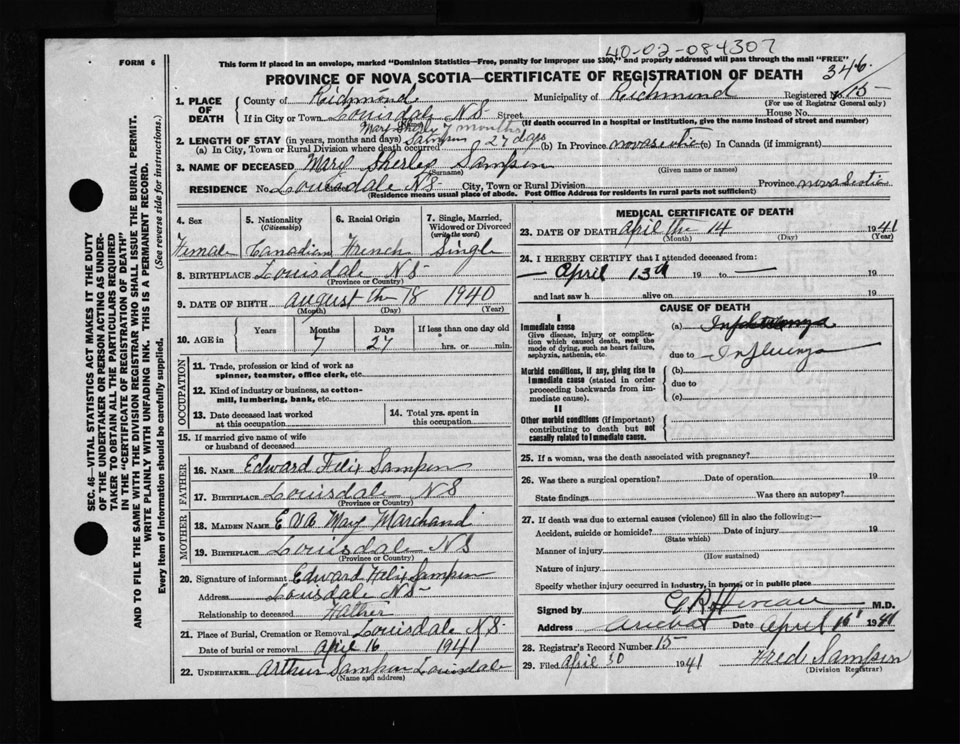 40-02-084307
FORM 6
This form if placed in an envelope, marked "Dominion Statistics—Free, penalty for improper use $300," and properly addressed will pass through the mail "FREE"
PROVINCE OF NOVA SCOTIA—CERTIFICATE OF REGISTRATION OF DEATH
346
1. PLACE OF DEATH County of Richmond Municipality of Richmond Registered No. 15-
(For use of Registrar General only)
If in City or Town Louisdale N S Street House No.
(Name) (If death occurred in a hospital or institution, give its name instead of street and number)
Mary Sherley 7 months
2. LENGTH OF STAY (in years, months and days) Sampson 27 days
(a) In City, Town or Rural Division where death occurred (b) In Province novascotia (c) In Canada (if immigrant)
3. NAME OF DECEASED Mary Sherley Sampson
(Surname) (Given name or names)
RESIDENCE No. Louisdale N S- City, Town or Rural Division Province nova Scotia
(Residence means usual place of abode. Post Office Address for residents in rural parts not sufficient)
4. Sex Female
5. Nationality (Citizenship) Canadian
6. Racial Origin French
7. Single, Married, Widowed or Divorced (write the word) Single
8. BIRTHPLACE Louisdale N S-
(Province or Country)
9. DATE OF BIRTH august the 18 1940
(Month) (Day) (Year)
10. AGE in Years Months 7 Days 27 If less than one day old hrs. or min.
OCCUPATION
11. Trade, profession or kind of work as spinner, teamster, office clerk, etc.
12. Kind of industry or business, as cotton-mill, lumbering, bank, etc.
13. Date deceased last worked at this occupation
14. Total yrs. spent in this occupation
15. If married give name of wife or husband of deceased
FATHER
16. NAME Edward Felix Sampson
17. BIRTHPLACE Louisdale N S
(Province or Country)
MOTHER
18. MAIDEN NAME EVA May Marchand
19. BIRTHPLACE Louisdale N S
(Province or Country)
20. Signature of informant Edward Felix Sampson
Address Louisdale N S-
Relationship to deceased Father
21. Place of Burial, Cremation or Removal Louisdale N S-
Date of burial or removal april 16 1941
22. UNDERTAKER Arthur Sampson Louisdale
(Name and address)
MEDICAL CERTIFICATE OF DEATH
23. DATE OF DEATH april the 14 1941
(Month) (Day) (Year)
24. I HEREBY CERTIFY that I attended deceased from:
— April 13th 19 to — 19
and last saw h alive on 19
CAUSE OF DEATH
I
Immediate cause
Give disease, injury or complication which caused death, not the mode of dying, such as heart failure, asphyxia, asthenia, etc.
(a)
due to Influenza
Morbid conditions, if any, giving rise to immediate cause (stated in order proceeding backwards from immediate cause).
(b)
due to
(c)
II
Other morbid conditions (if important) contributing to death but not causally related to immediate cause.
25. If a woman, was the death associated with pregnancy?
26. Was there a surgical operation? Date of operation 19
State findings Was there an autopsy?
27. If death was due to external causes (violence) fill in also the following:—
Accident, suicide or homicide? Date of injury 19
(State which)
Manner of injury
(How sustained)
Nature of injury
Specify whether injury occurred in industry, in home, or in public place
Signed by M.D.
Address Arichat Date April 16 1941
28. Registrar's Record Number 15-
29. Filed april 30 1941 Fred Sampson
(Division Registrar)
SEC. 46—VITAL STATISTICS ACT MAKES IT THE DUTY
OF THE UNDERTAKER OR PERSON ACTING AS UNDER-
TAKER TO OBTAIN ALL THE PARTICULARS REQUIRED
IN THE "CERTIFICATE OF REGISTRATION OF DEATH"
AND TO FILE THE SAME WITH THE DIVISION REGISTRAR WHO SHALL ISSUE THE BURIAL PERMIT.
WRITE PLAINLY WITH UNFADING INK. THIS IS A PERMANENT RECORD.
Every item of Information should be carefully supplied. (See reverse side for instructions.)